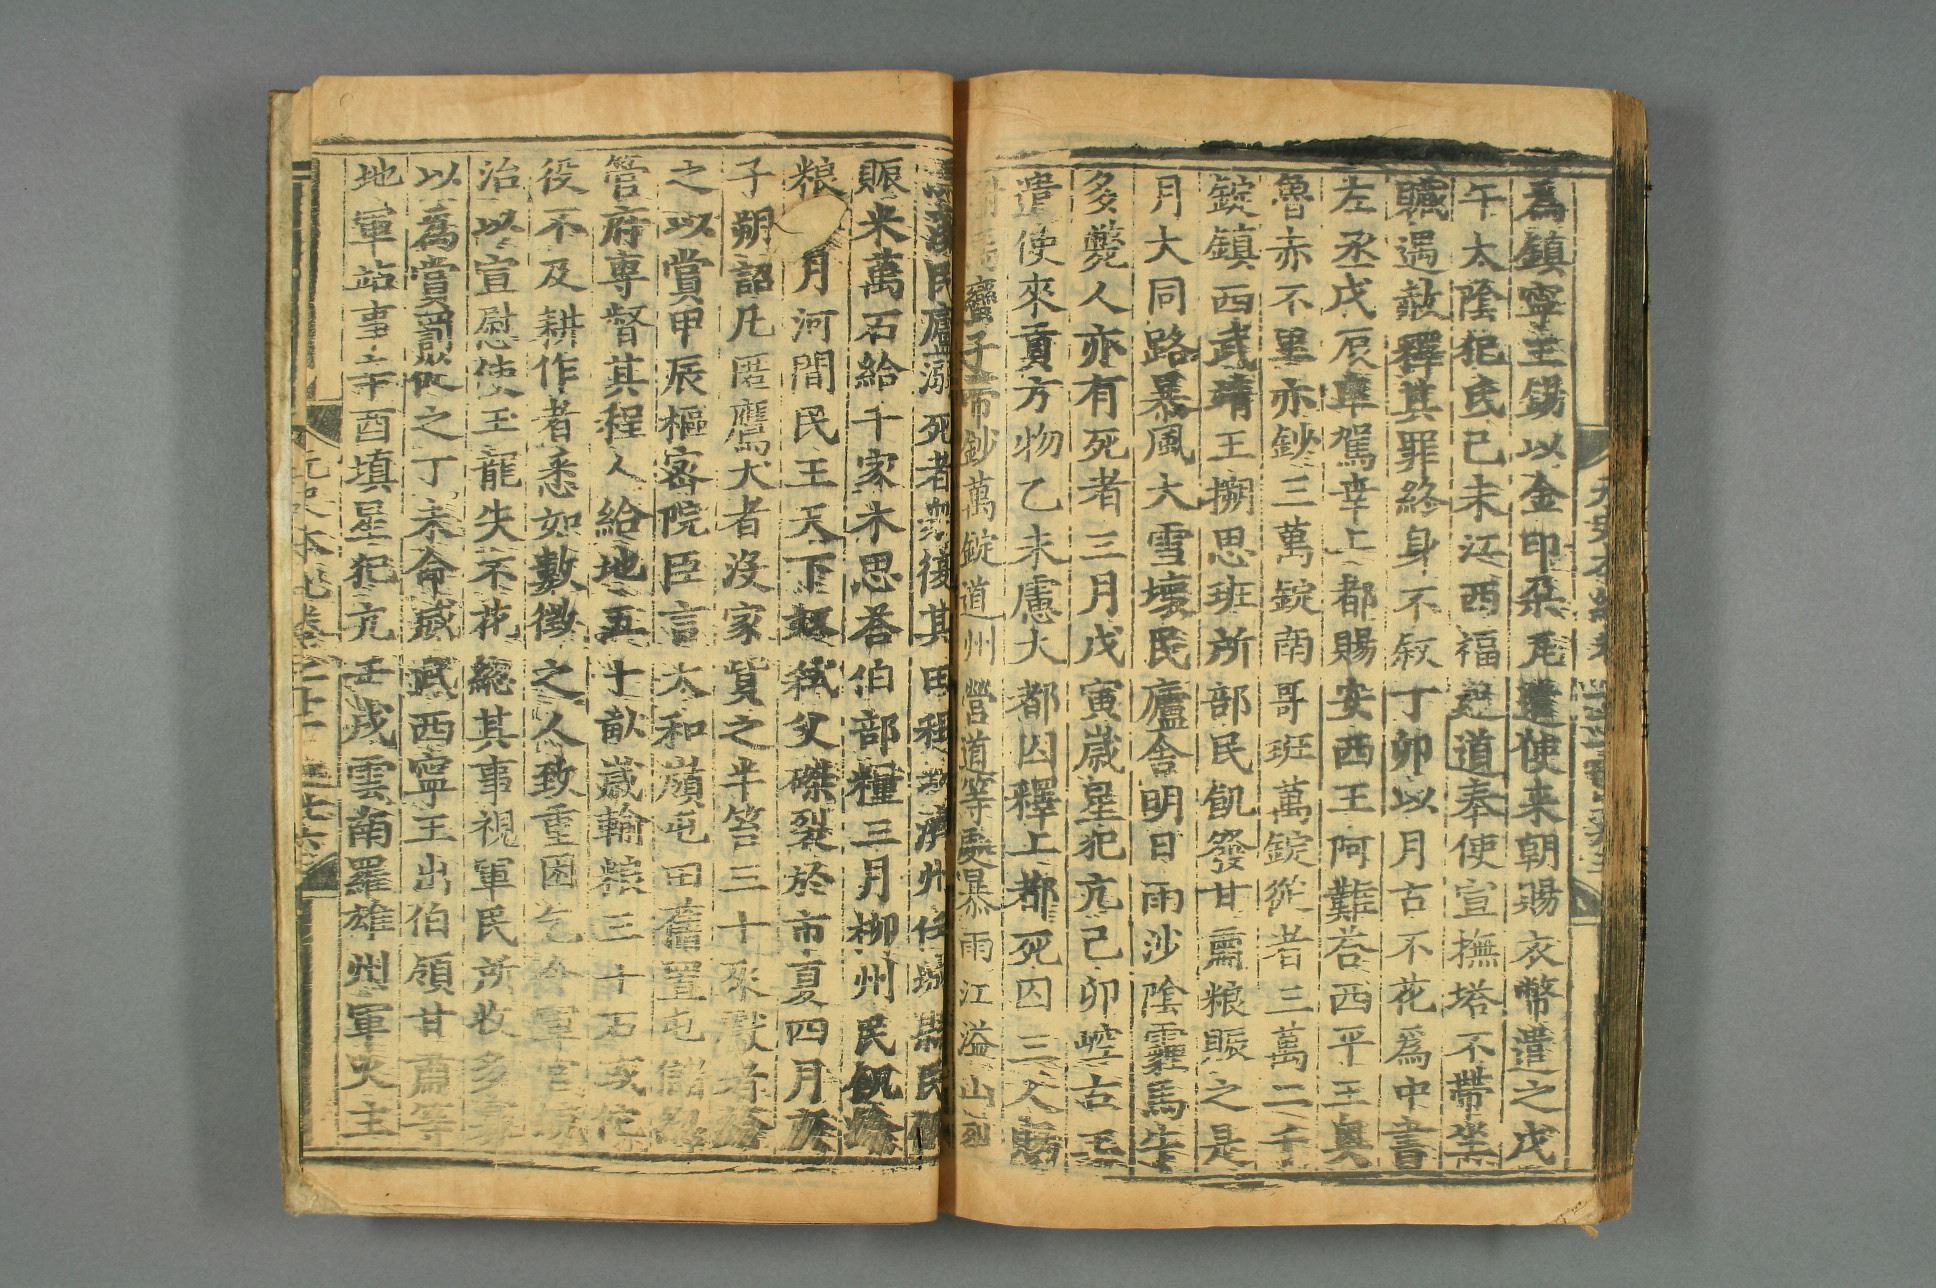 為鎮寧王錫以金印朶兀遣使来朝賜衣幣遣之戊
午太陰犯氐己未江西福建道奉使宣撫塔不帶坐
贓遇赦釋其罪終身不叙丁卯以月古不花為中書
左丞戊辰車駕幸上都賜安西王阿難荅西平王奥
魯赤不里亦鈔三萬錠南哥班萬錠從者三萬二千
錠鎮西武靖王搠思班所部民飢發甘肅粮賑之是
月大同路暴風大雪壞民廬舍明日雨沙陰霾馬牛
多斃人亦有死者三月戊寅歳星犯亢己卯
遣使來貢方物乙未慮大都囚釋上都死囚三人賜
蠻子帶鈔萬錠道州營道等處暴雨江溢山裂
民廬溺死者衆復其田租
賑米萬石給千家木思荅伯部糧三月柳州民飢
粮月河間民王天下奴弑父磔裂於市夏四月
子朔詔凡匿鷹犬者沒家貲之半笞三十來獻者給
之以賞甲辰樞密院臣言太和嶺屯田舊置屯儲
管府専督其程人給地五十畝歳輸粮三十石或佗
役不及耕作者悉如數徴之人致重困乞令軍官統
治以宣慰使玉龍失不花緫其事視軍民所收多寡
以為賞罰從之丁未命威武西寧王出伯領甘肅等
地軍站事辛酉填星犯亢壬戌雲南羅雄州軍火主
元史本紀卷二十一